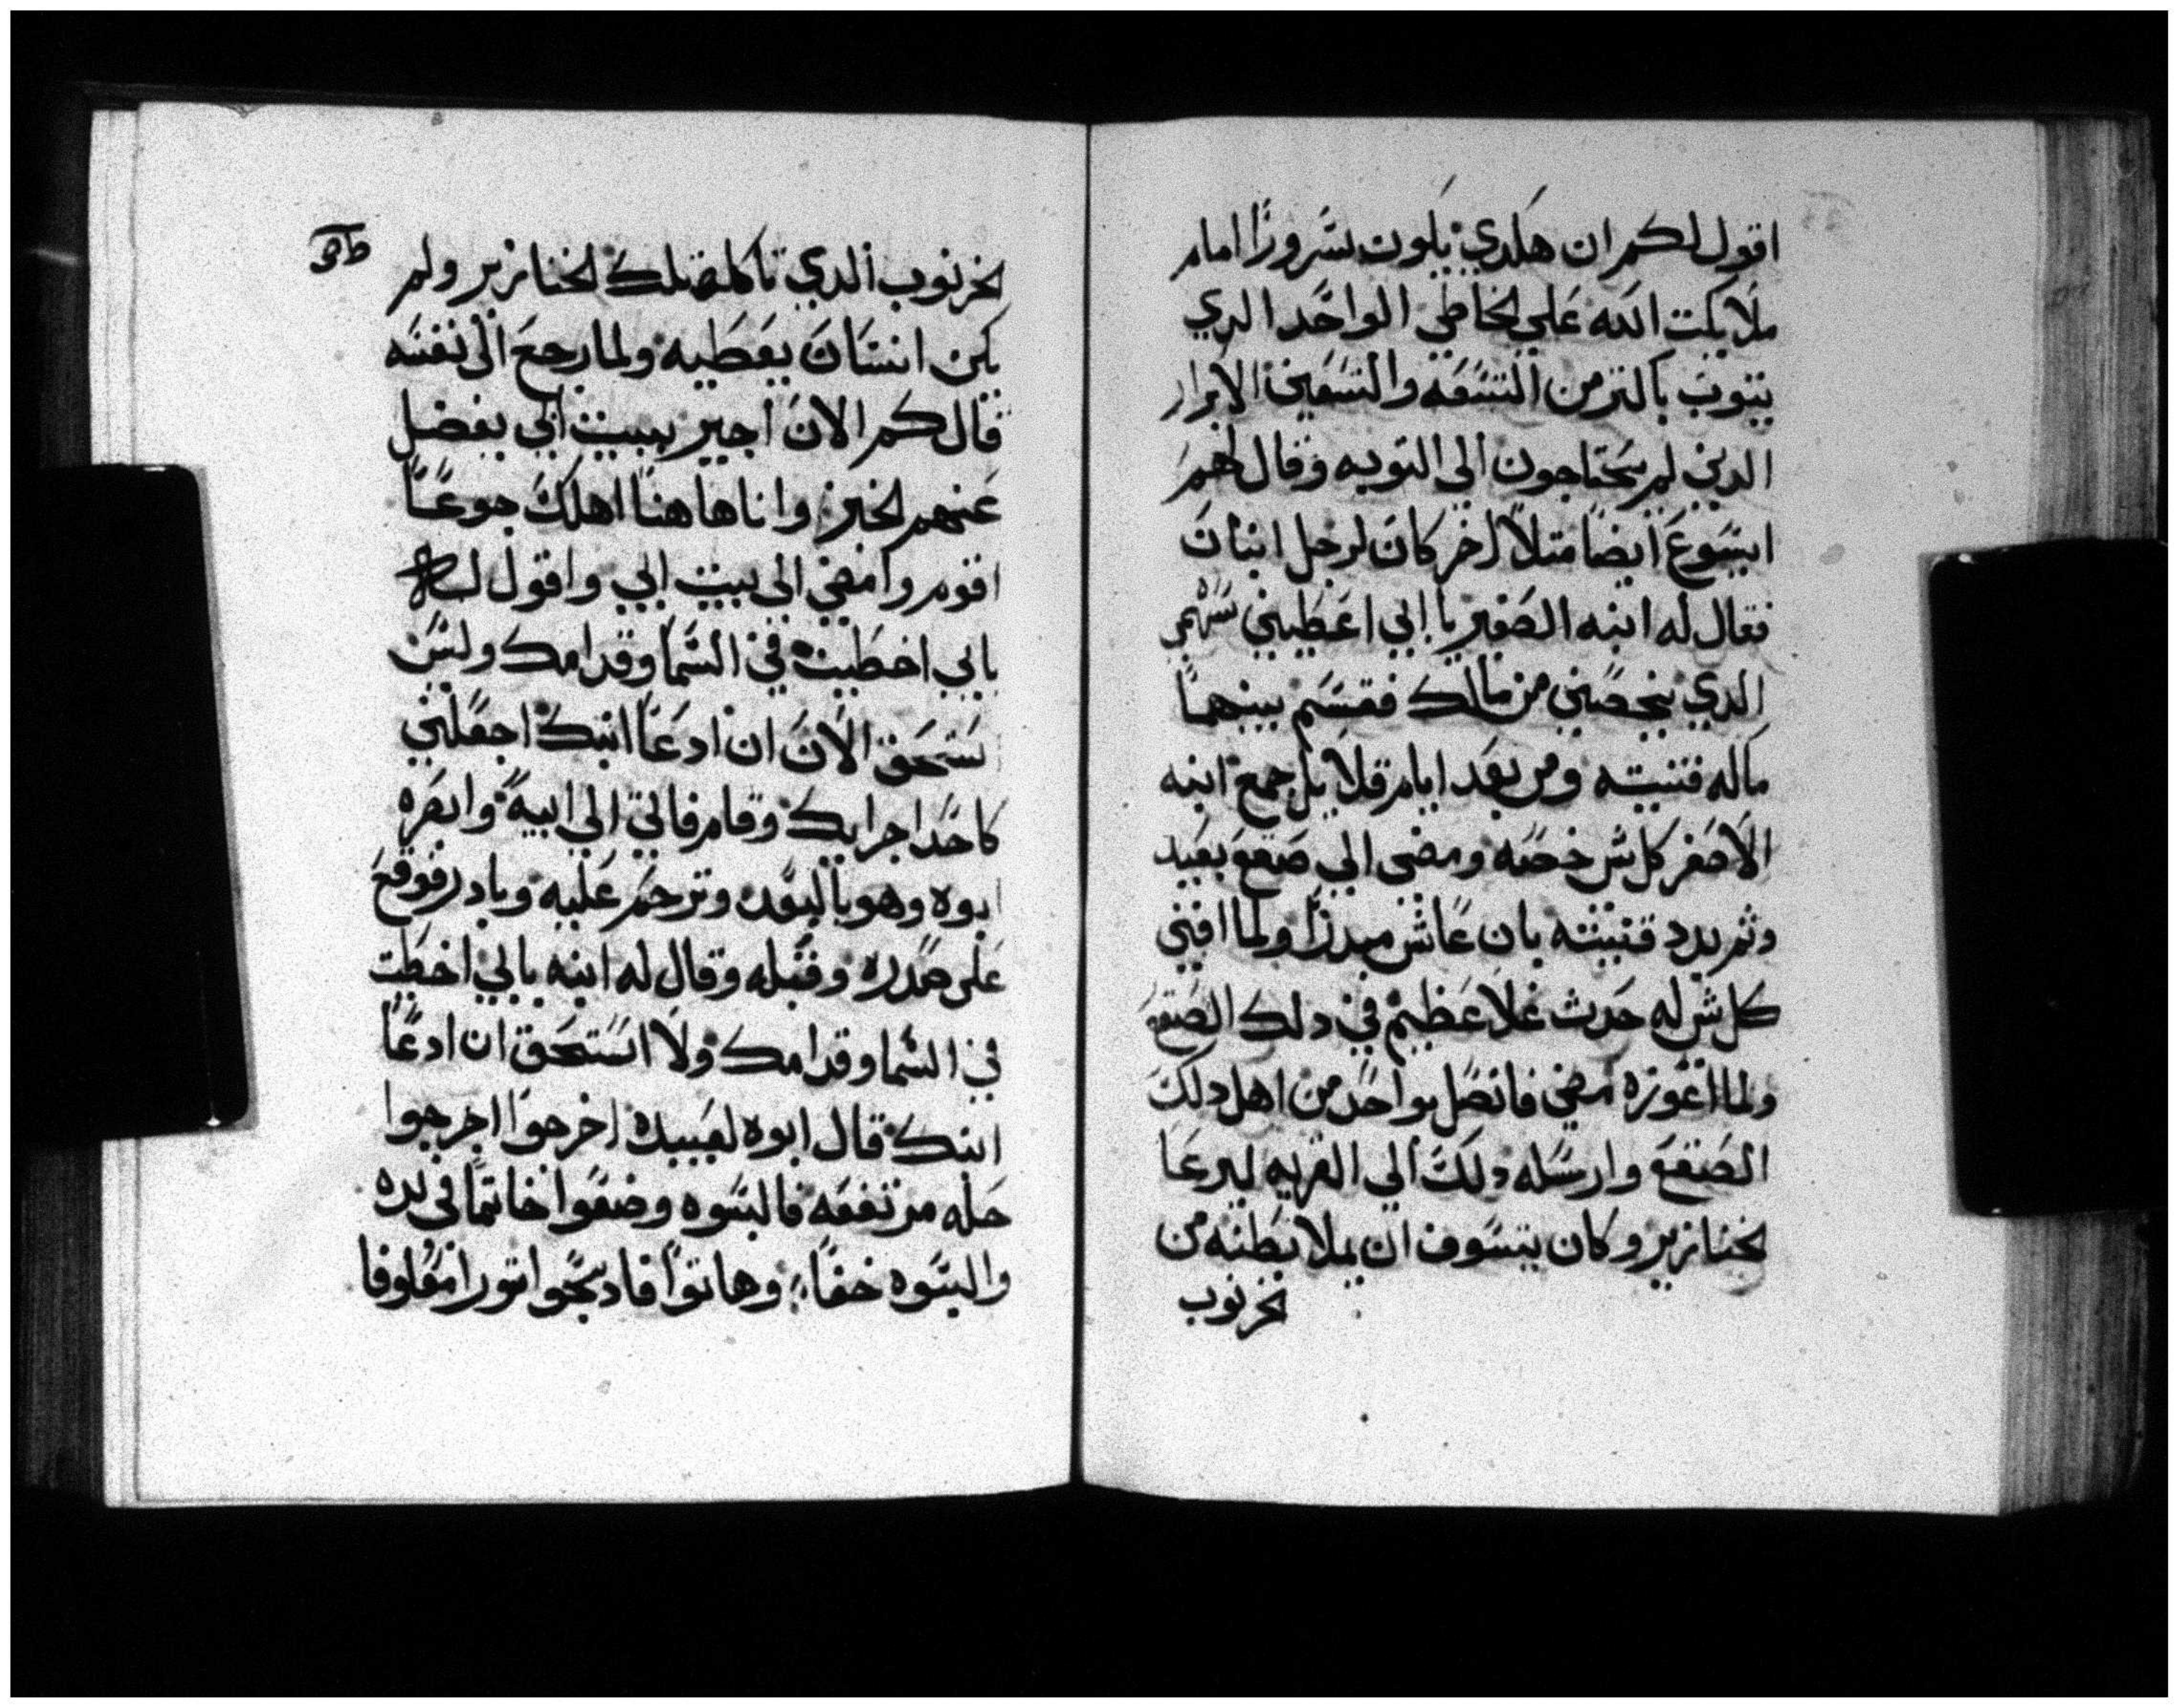 اقول لكم ان هكدي يكون سرورًا امام
ملايكت الله علي الخاطي الواحد الدي
يتوب باكتر من التسعه والتسعين الابرار
الدين لم يحتاجون الي التوبه وقال لهم
ايسوع ايضا متلا اخر كان لرجل ابنان
فقال له ابنه الصغير يا ابي اعطيني سهم
الدي يخصني من مالك فقسم بينهما
ماله قنيته ومن بعد ايام قلايل جمع ابنه
الاصغر كل ش خصه ومضى الي صقع بعيد
وتم بدد قنيته بان عاش مبدرًا ولما افني
كل ش له حدث غلا عظيم في دلك الصقع
ولما اعوزه مضي فاتصل بواحد من اهل دلك
الصقع وارسله دلك الي القريه ليرعا
الخنازير وكان يتسوف ان يملا بطنه من
الخرنوب
الخرنوب الدي تاكله تلك الخنازير ولم
يكن انسان يعطيه ولما رجع الى نفسه
قال كم الان اجير ببيت ابي يفضل
عنهم الخبز وانا هاهنا اهلك جوعًا
اقوم وامضي الى بيت ابي واقول له
يابي اخطيت في السما وقدامك وليس
نستحق الان ان ادعا ابنك اجعلني
كاحد اجرايك وقام فاتي الي ابيه وابصره
ابوه وهو بالبعد وترحم عليه وبادر فوقع
على صدره وقبله وقال له ابنه يابي اخطيت
في السما وقدامك ولا استحق ان ادعا
ابنك قال ابوه لعبيده اخرجوا اخرجوا
حله مرتفعه فالبسوه وضعوا خاتما في يده
والبسوه خفًا وهاتوا فادبحوا تورا معلوفا